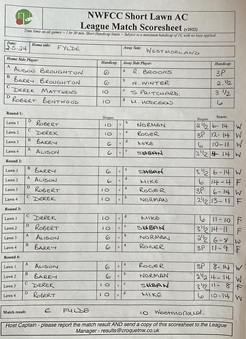 NWFCC Short Lawn AC
League Match Scoresheet (v2022)
Home side: FYLDE Away Side: WESTMORLAND
Home Side Player: Handicap Away Side Player: Handicap
A ALISON BROUGHTON 6 R. BROOKS 3P
B BARRY BROUGHTON 6 N. WINTER 2½
C DEREK MATTHEWS 10 S PRITCHARD 3½
D ROBERT 10 6
Round 1:
Lawn 1 D ROBERT 10 v NORMAN 2½ 6 - 14 W
Lawn 2 C DEREK 10 v ROGER 3P 12 - 14 W
Lawn 3 B BARRY 6 v MIKE 6 10 - 11 W
Lawn 4 A ALISON 6 v SUSAN 3½ - 14 W
Round 2:
Lawn 1 B BARRY 6 v SUSAN 3½ 6 - 14 W
Lawn 2 A ALISON 6 v MIKE 6 14 - 4 F
Lawn 3 D ROBERT 10 v ROGER 3P 6 - 14 W
Lawn 4 C DEREK 10 v NORMAN 2½ 13 - 11 F
Round 3:
Lawn 1 C DEREK 10 v MIKE 6 11 - 10 F
Lawn 2 D ROBERT 10 v SUSAN 3½ 14 - 11 F
Lawn 3 A ALISON 6 v NORMAN 2½ 6 - 8 W
Lawn 4 B BARRY 6 v ROGER 3P 11 - 9 F
Round 4:
Lawn 1 A ALISON 6 v ROGER 3P 8 - 14 W
Lawn 2 B BARRY 6 v NORMAN 2½ 4 - 14 W
Lawn 3 C DEREK 10 v SUSAN 3½ 11 - 8 F
Lawn 4 D ROBERT 10 v MIKE 6 10 - 14 W
Match results 6 FYLDE 10 WESTMORLAND
Host Captain - please report the match result AND send a copy of this scoresheet to the League
Manager - results@croquetnw.co.uk